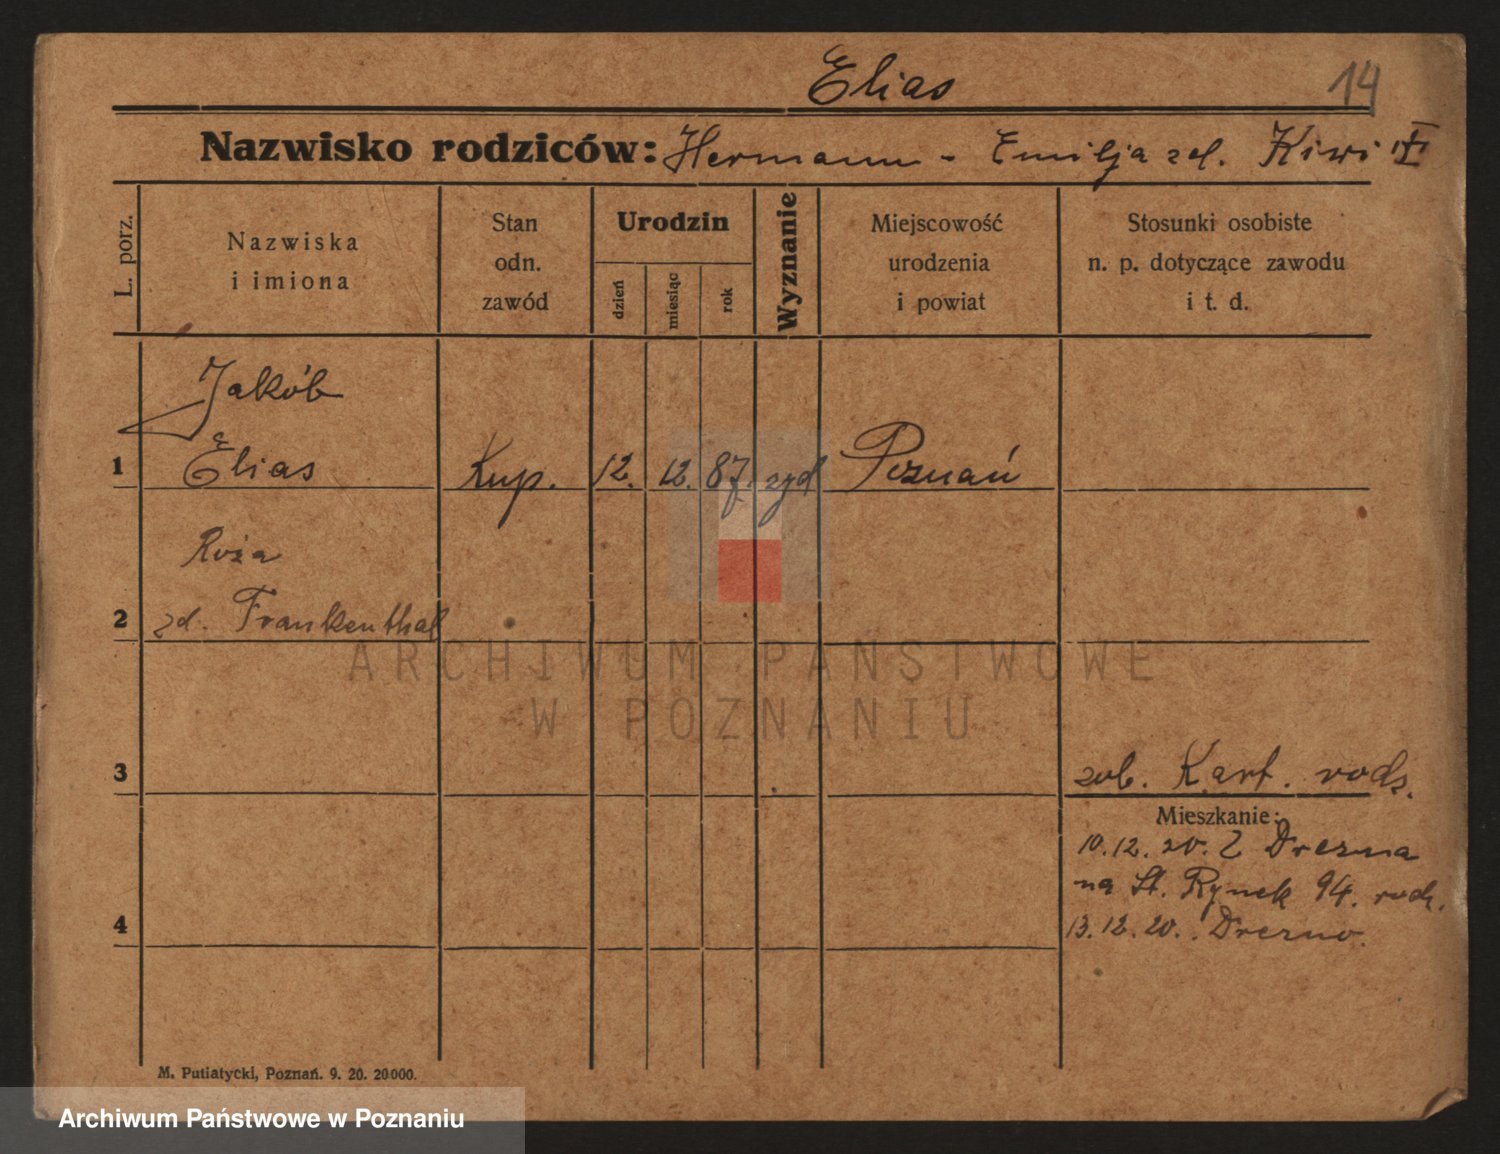 Elias
14
Nazwisko rodziców: Hermann - Emilja zd. Kiwi
L. porz.
Nazwiska
i imiona
Stan
odn.
zawód
Urodzin
dzień
miesiąc
rok
Wyznanie
Miejscowość
urodzenia
i powiat
Stosunki osobiste
n. p. dotyczące zawodu
i t. d.
Jakób
1 Elias Kup. 12. 12. 87. żyd Poznań
Roża
2 zd. Frankenthal
ARCHIWUM PAŃSTWOWE
W POZNANIU
3 zob. Kart. rodz.
Mieszkanie:
10.12.20. Z Drezna
na St. Rynek 94. rodz.
4 13.12.20. Drezno.
M. Putiatycki, Poznań. 9. 20. 20000.
Archiwum Państwowe w Poznaniu